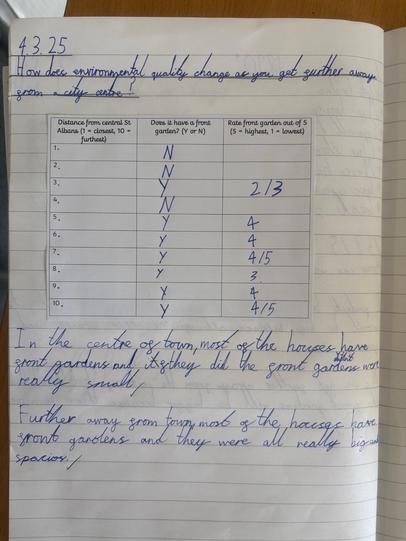 4.3.25
How does environmental quality change as you get further away
from a city centre?
Distance from central St Albans (1 = closest, 10 = furthest) Does it have a front garden? (Y or N) Rate front garden out of 5 (5 = highest, 1 = lowest)
1. N
2. N
3. Y 2/3
4. N
5. Y 4
6. Y 4
7. Y 4/5
8. Y 3
9. Y 4
10. Y 4/5
In the centre of town, most of the houses have
front gardens and if they did the front gardens were
really small
Further away from town, most of the houses have
front gardens and they were all really big and
spacios.